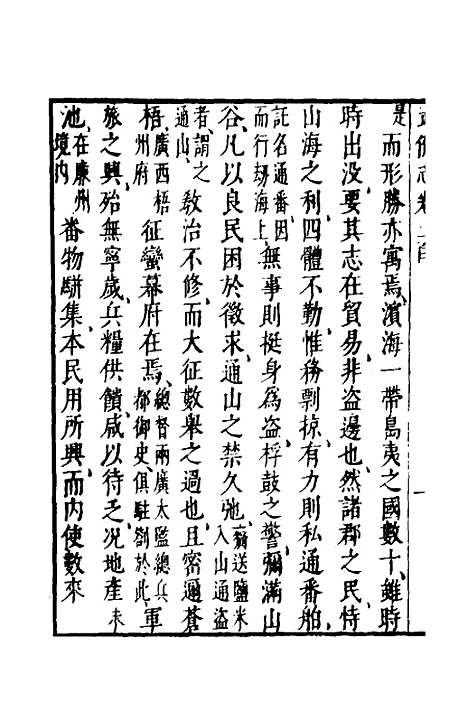 是而形勝亦寓焉濱海一帶島夷之國數十雖時
時出没要其志在貿易非盗邊也然諸郡之民恃
山海之利四體不勤惟務剽掠有力則私通番舶
託名通番因而行刼海上無事則挺身爲盗桴鼓之警彌滿山
谷凡以良民困於徵求通山之禁久弛一翁送鹽米入山通盗
者謂之通山敎治不修而大征數舉之過也且密邇蒼
梧廣西梧州府征蠻幕府在焉總督兩廣太監總兵都御史俱駐劄於此軍
旅之興殆無寧歲兵糧供饋咸以待乏况地產未
池在廉州境内畨物駢集本民用所興而内使數來